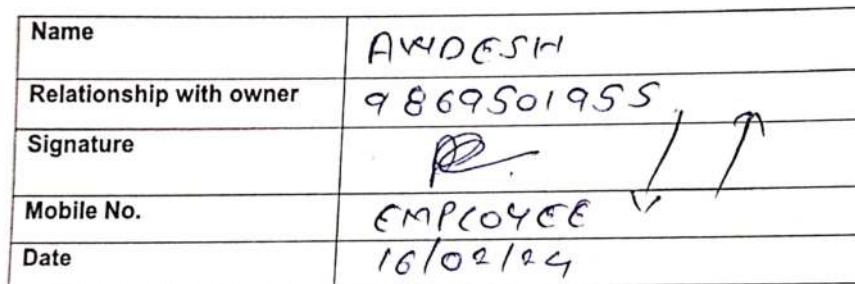 Name AWDESH
Relationship with owner 9869501955
Signature
Mobile No. EMPLOYEE
Date 16/02/24